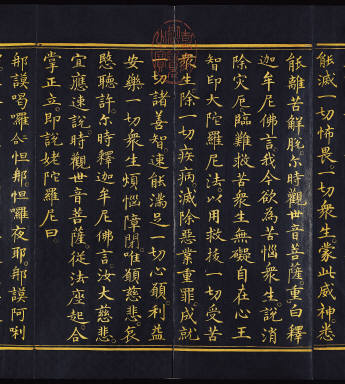 能滅一切怖畏一切衆生蒙此威神悉
能離苦解脫尒時觀世音菩薩重白釋
迦牟尼佛言我今欲為苦惱衆生說消
除灾厄臨難救苦衆生無礙自在心王
智印大陀羅尼法以用救拔一切受苦
衆生除一切疾病滅除惡業重罪成就
切諸善智速能滿足一切心願利益
安樂一切衆生煩惱障閉唯願慈悲哀
愍聽許尒時釋迦牟尼佛言汝大慈悲
宜應速說時觀世音菩薩從法座起合
掌正立即說姥陀羅尼曰
那謨喝囉怛那怛囉夜耶那謨阿唎